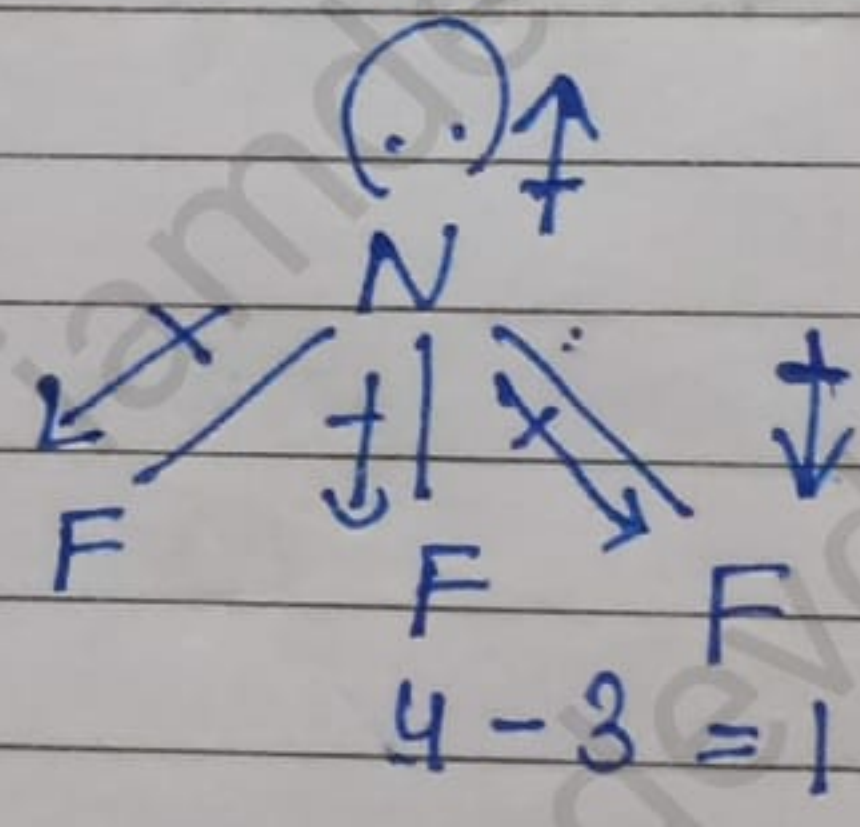 N
F F F
4 - 3 = 1